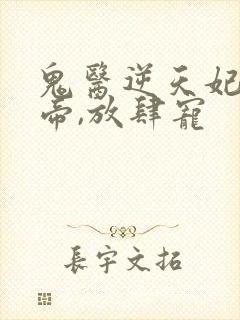 鬼醫逆天妃
帝,放肆寵
長宇文拓